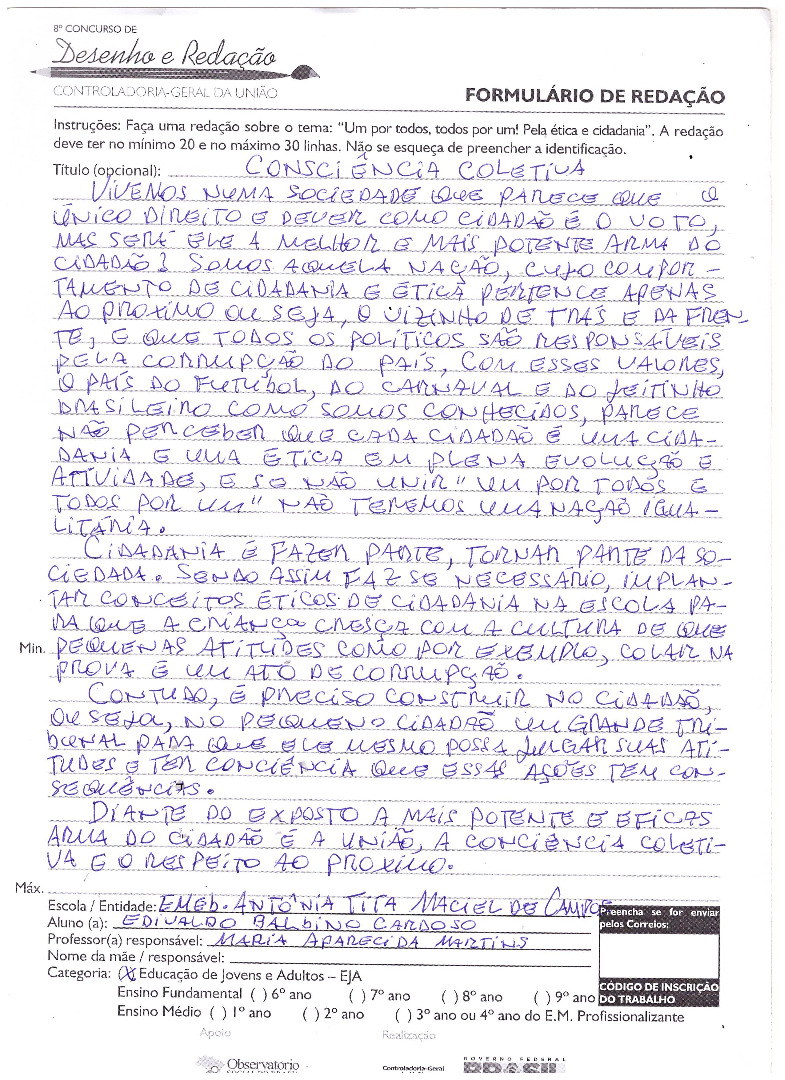 8º CONCURSO DE
Desenho e Redação
CONTROLADORIA-GERAL DA UNIÃO
FORMULÁRIO DE REDAÇÃO
Instruções: Faça uma redação sobre o tema: "Um por todos, todos por um! Pela ética e cidadania". A redação
deve ter no mínimo 20 e no máximo 30 linhas. Não se esqueça de preencher a identificação.
Título (opcional): CONSCIÊNCIA COLETIVA
VIVEMOS NUMA SOCIEDADE QUE PARECE QUE O
ÚNICO DIREITO E DEVER COMO CIDADÃO É O VOTO,
MAS SERÁ ELE A MELHOR E MAIS POTENTE ARMA DO
CIDADÃO? SOMOS AQUELA NAÇÃO, CUJO COMPOR-
TAMENTO DE CIDADANIA E ÉTICA PERTENCE APENAS
AO PROXIMO OU SEJA, O VIZINHO DE TRÁS E DA FREN-
TE, E QUE TODOS OS POLÍTICOS SÃO RESPONSÁVEIS
PELA CORRUPÇÃO DO PAÍS, COM ESSES VALORES,
O PAÍS DO FUTEBOL, DO CARNAVAL E DO JEITINHO
BRASILEIRO COMO SOMOS CONHECIDOS, PARECE
NÃO PERCEBER QUE CADA CIDADÃO É UMA CIDA-
DANIA E UMA ÉTICA EM PLENA EVOLUÇÃO E
ATIVIDADE, E SE NÃO UNIR "UM POR TODOS E
TODOS POR UM" NÃO TEREMOS UMA NAÇÃO IGUA-
LITÁRIA.
CIDADANIA É FAZER PARTE, TORNAR PARTE DA SO-
CIEDADA. SENDO ASSIM FAZ SE NECESSÁRIO, IMPLAN-
TAR CONCEITOS ÉTICOS DE CIDADANIA NA ESCOLA PA-
RA QUE A CRIANÇA CRESÇA COM A CULTURA DE QUE
Min. PEQUENAS ATITUDES COMO POR EXEMPLO, COLAR NA
PROVA É UM ATO DE CORRUPÇÃO.
CONTUDO, É PRECISO CONSTRUIR NO CIDADÃO,
OU SEJA, NO PEQUENO CIDADÃO UM GRANDE TRI-
BUNAL PARA QUE ELE MESMO POSSA JULGAR SUAS ATI-
TUDES E TER CONCIÊNCIA QUE ESSAS AÇÕES TEM CON-
SEQUÊNCIAS.
DIANTE DO EXPOSTO A MAIS POTENTE E EFICAS
ARMA DO CIDADÃO É A UNIÃO, A CONCIÊNCIA COLETI-
VA E O RESPEITO AO PROXIMO.
Máx.
Escola / Entidade: EMEB. ANTÔNIA TITA MACIEL DE CAMPOS
Aluno (a): EDIVALDO BALBINO CARDOSO
Professor(a) responsável: MARIA APARECIDA MARTINS
Nome da mãe / responsável:
Preencha se for enviar
pelos Correios:
CÓDIGO DE INSCRIÇÃO
DO TRABALHO
Categoria: (X) Educação de Jovens e Adultos – EJA
Ensino Fundamental ( ) 6º ano ( ) 7º ano ( ) 8º ano ( ) 9º ano
Ensino Médio ( ) 1º ano ( ) 2º ano ( ) 3º ano ou 4º ano do E.M. Profissionalizante
Apoio
Realização
Observatorio
Controladoria-Geral
GOVERNO FEDERAL
BRASIL